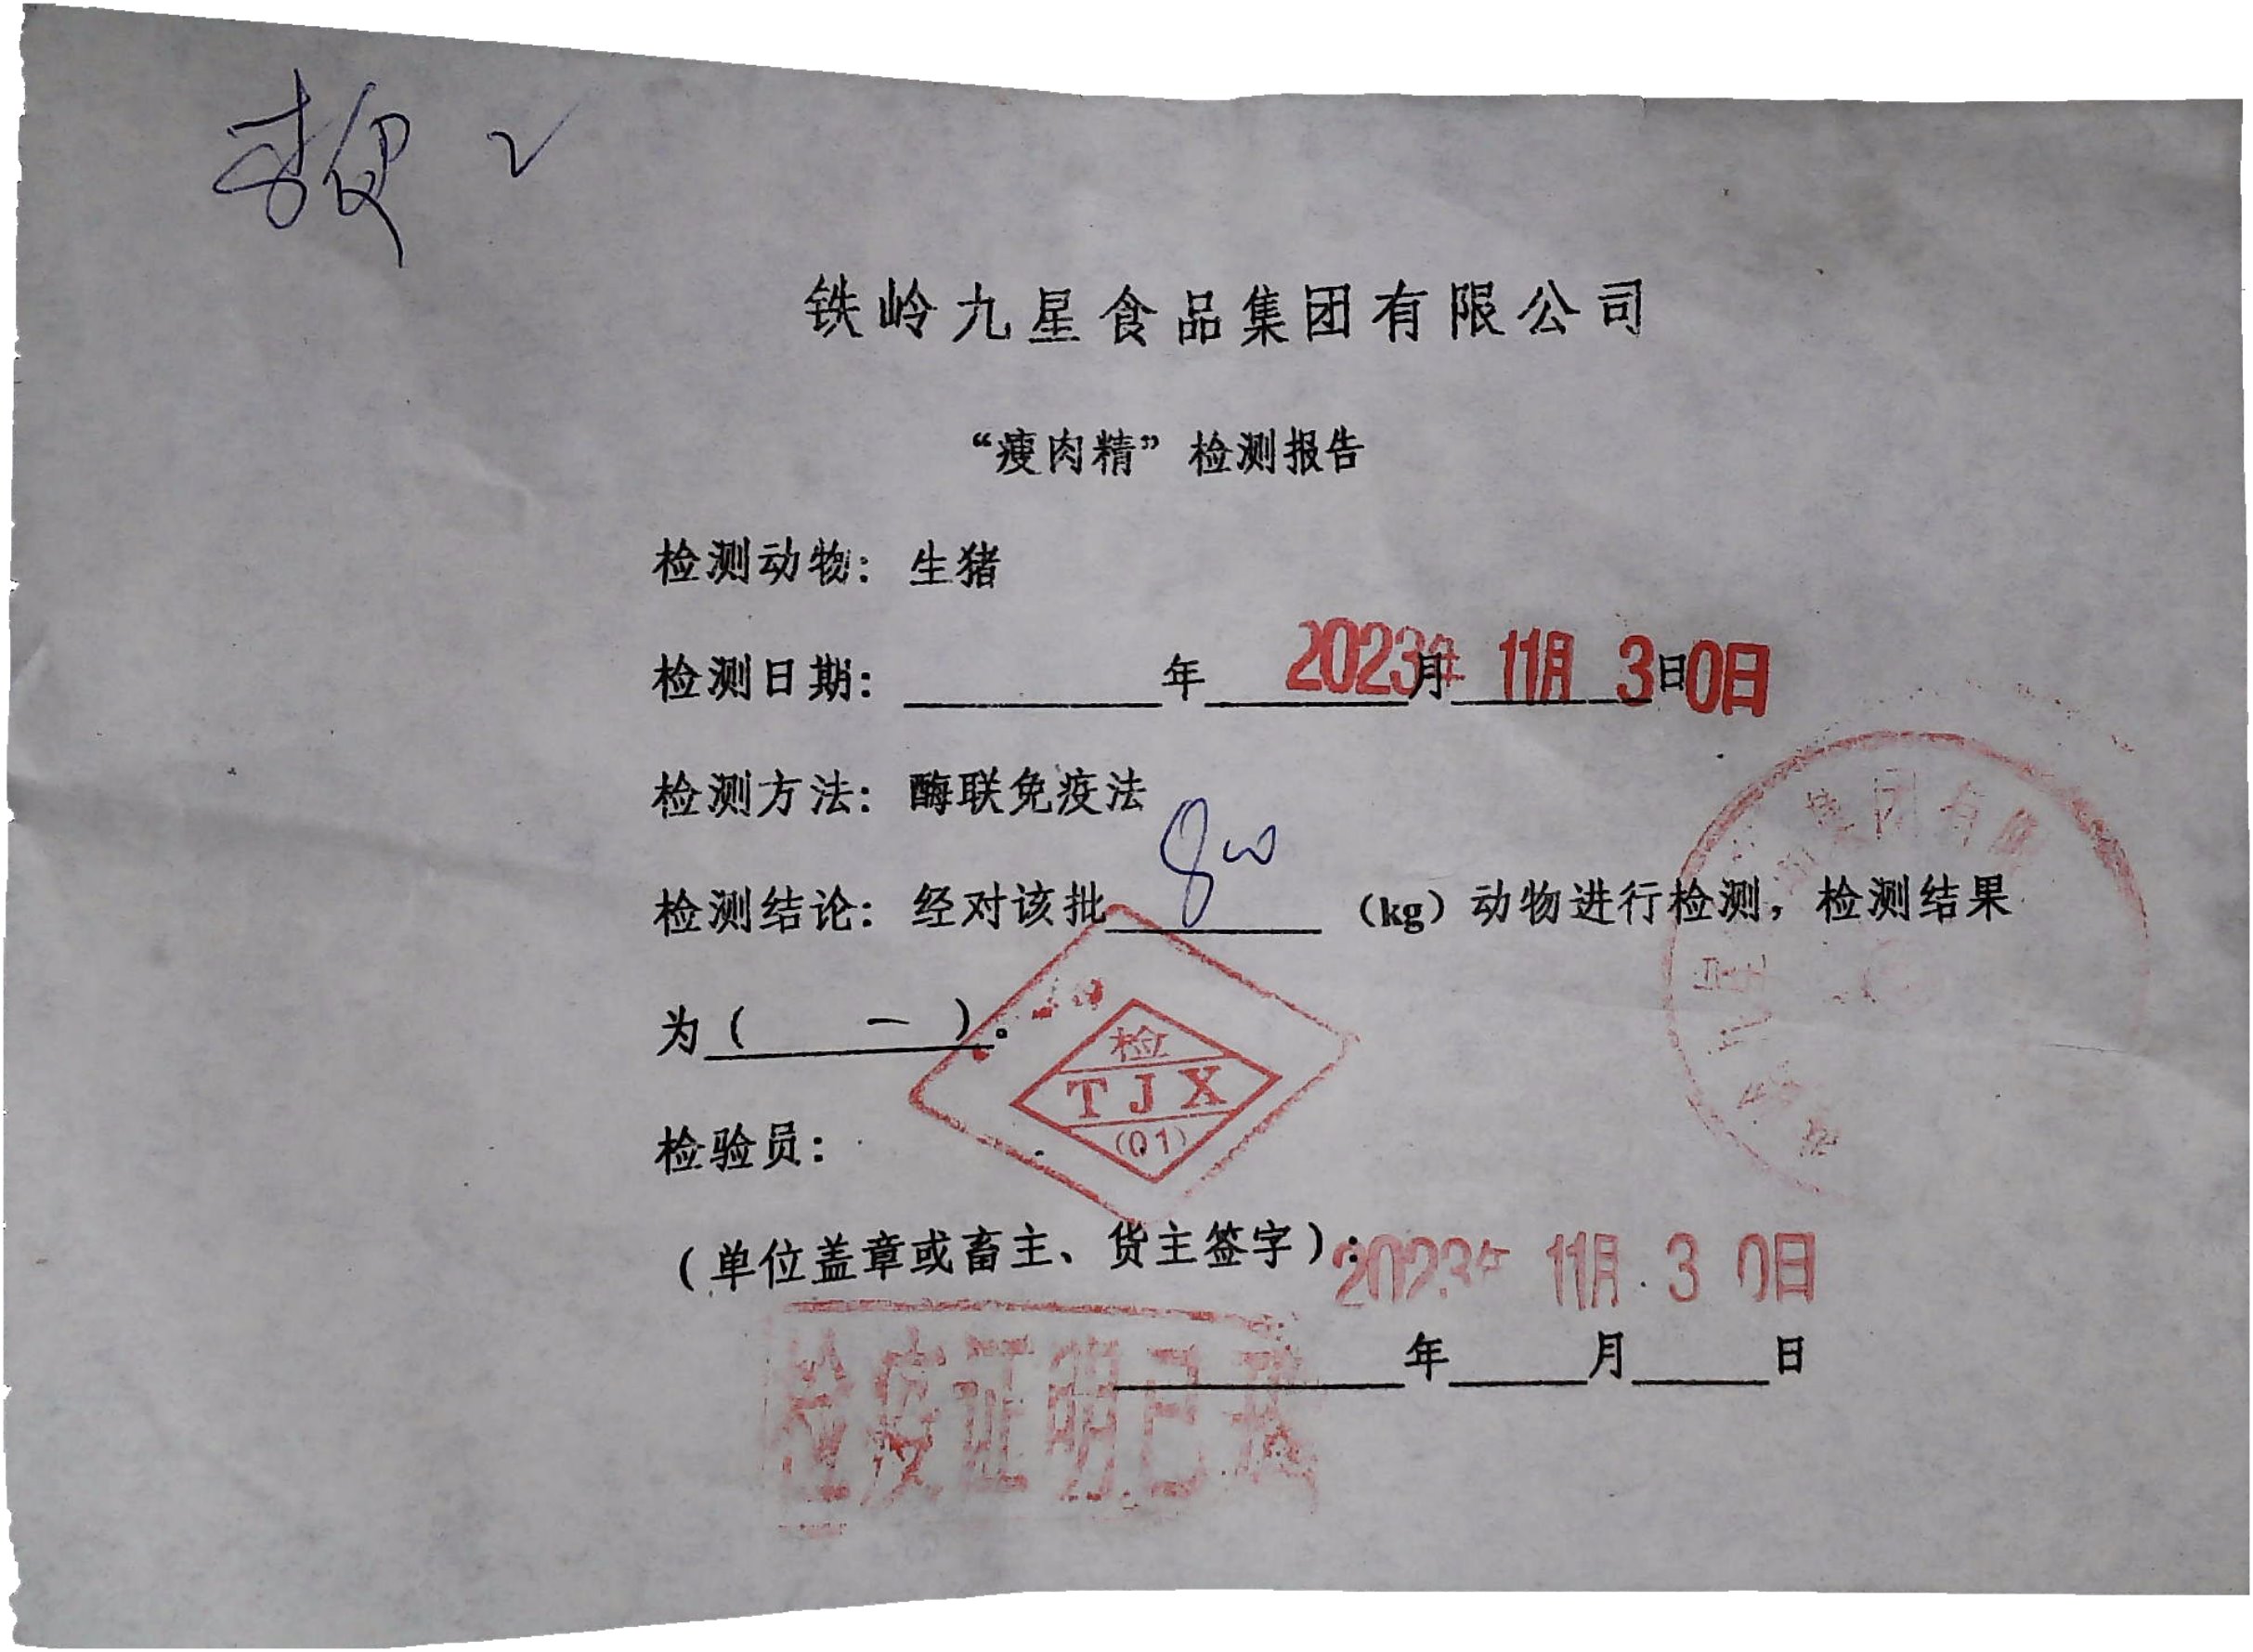 铁岭九星食品集团有限公司
“瘦肉精”检测报告
检测动物：生猪
检测日期：年月日
2023年 11月 30日
检测方法：酶联免疫法
检测结论：经对该批 800 （kg）动物进行检测，检测结果
为（ — ）。
检
TJX
(01)
检验员：
（单位盖章或畜主、货主签字）：
2023年 11月 30日
年月日
检疫证明已
集团有限